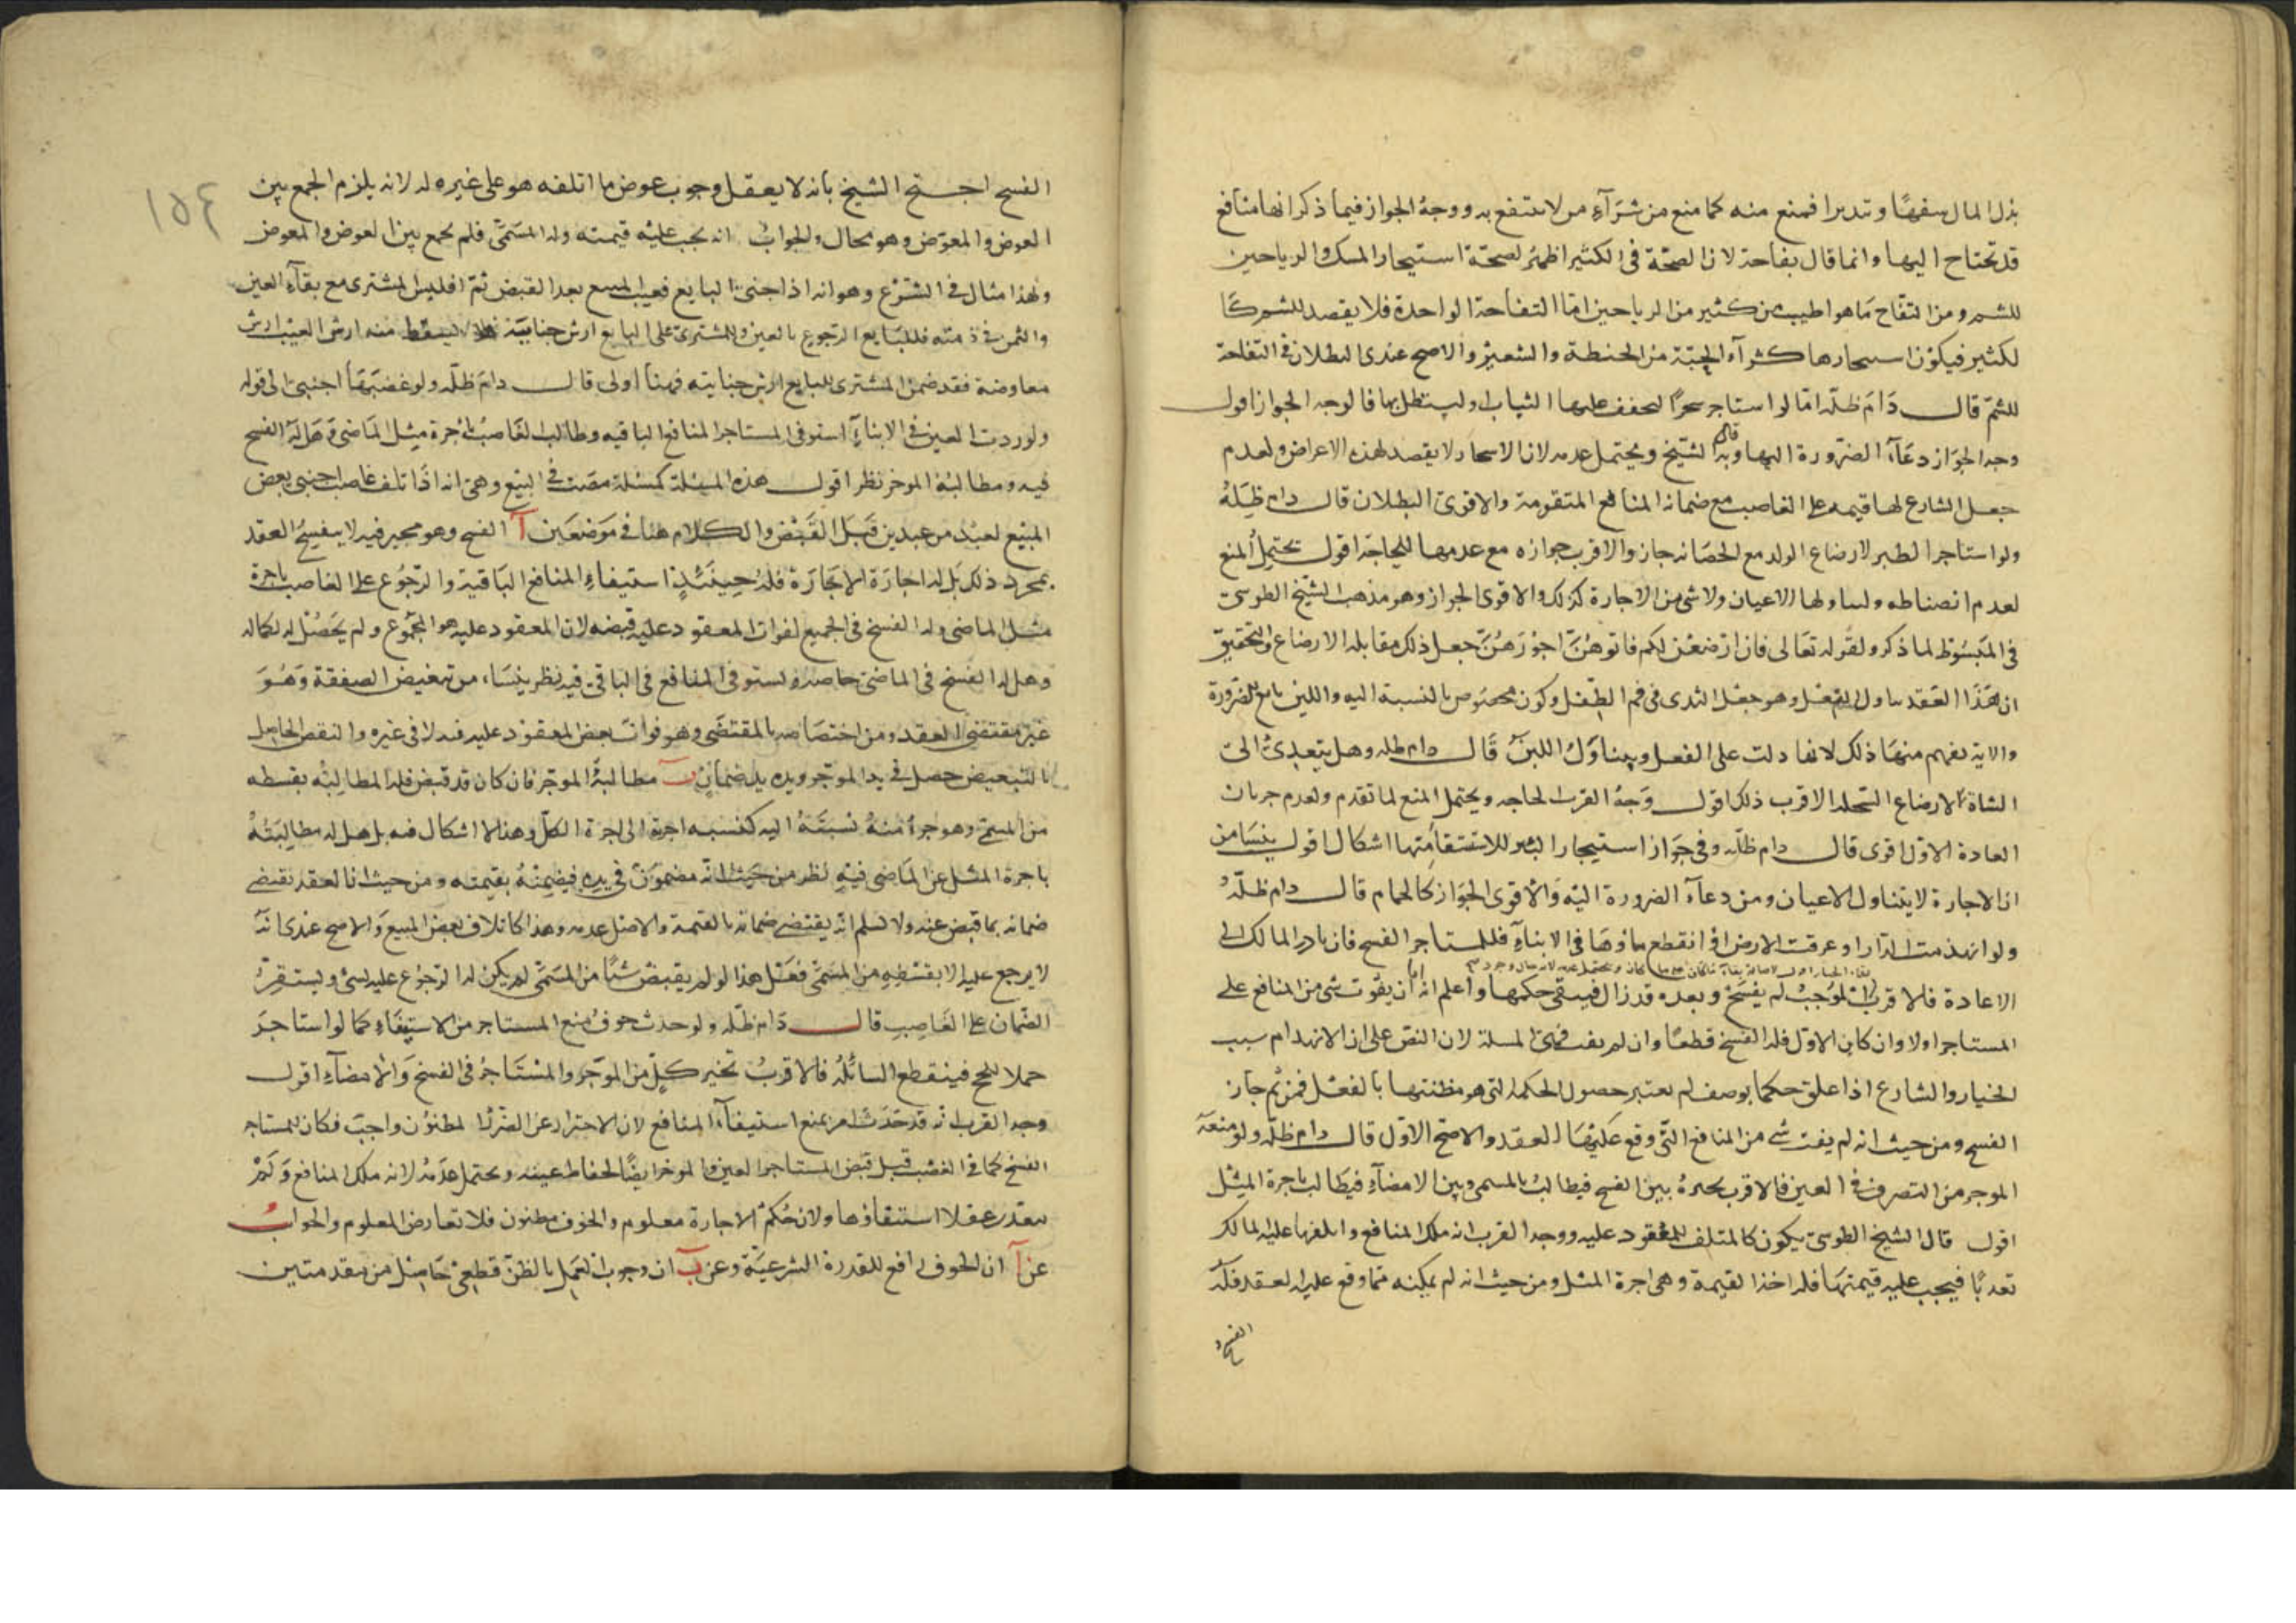 بذل المال سفهًا وتبذيرا فمنع منه كما منع من شرآء من لا ينتفع به ووجهُ الجواز فيما ذكر انها منافع
قد تحتاج اليها وانما قال تفاحة لان الصحّة فى الكثير اظهرُ لصحّة استيجار المسك والرياحين
للشم ومن التفّاح مَا هو اطيب من كثير من الرياحين امّا التفاحة الواحدة فلا يقصد للشم كا
لكثير فيكون استيجارها كشرآء الحبّة من الحنطة والشعير والاصح عندى البطلان فى التفاحة
للشمّ قال دَامَ ظلّه امّا لو استاجر شجرًا ليجفف عليها الثياب او ليستظل بها فالوجه الجواز اقول
وجه الجوَاز دعآء الضرورة اليها وبه قال الشيخ ويحتمل عدمه لان الاشجار لا يقصد لهذه الاغراض ولعدم
جعل الشارع لها قيمة على الغاصب مع ضمانه المنافع المتقومة والاقوى البطلان قال دام ظِلّهُ
ولو استاجر الظئر لارضاع الولد مع الحضانه جاز والاقرب جوازه مع عدمها للحاجة اقول يحتمل المنع
لعدم انضباطه ولتناولها الاعيان ولا شئ من الاجارة كذلك والاقوى الجواز وهو مذهب الشيخ الطوسى
فى المَبسُوط لما ذكر ولقوله تعَالى فان ارضعْن لكم فاتوهُنّ اجوُرَهُنّ جعل ذلك مقابله الارضاع والتحقيق
ان هَذَا العَقد يتناول الفعْل وهو جعْل الثدى فى فم الطفل وكون مخصُوص بالنسبة اليه واللبن تابع للضرورة
والاية يفهم منهَا ذلك لانها دلت على الفعل ويتناوَلُ اللبنَ قَال دام ظله وهل يتعدىُ الى
الشاة لارضاع السّخله الاقرب ذلك اقول وَجهُ القرب الحاجه ويحتمل المنع لما تقدم ولعدم جريان
العادة الاوّل اقوى قال دام ظلّه وفى جوَاز استيجار البئر للاستقاء منها اشكال اقول ينشا من
ان الاجارة لا يتناول الاعيان ومن دعآء الضرورة اليه وَالاقوى الجوَاز كالحمام قال دام ظلّهُ
ولو انهدمت الدّار او غرقت الارض او انقطع ماؤهَا فى الاثناءِ فللمستاجر الفسخ فان بادر المالك الى
الاعادة فالاقرب ان لم يفسخ وبعده قد زال فيبقى حكمها واعلم انه اما ان يفوت شئ من المنافع على
المستاجر او لا وان كان الاوّل فله الفسخ قطعًا وان لم يفت فهى المسئلة لان النص على ان الانهدام سبب
الخيار والشارع اذا علق حكما بوصف لم يعتبر حصول الحكمه التى هو مظنتها بالفعل فمن ثم جاز
الفسخ ومن حيث انه لم يفت شئ من المنافع التى وقع عَليهَا العقد والاصحّ الاوّل قال دام ظلّه ولو منعه
الموجر من التصرف فى العين فالاقرب تخيره بين الفسخ فيطالبُ بالمسمى وبين الامضآء فيطالب باجرة المثل
اقول قال الشيخ الطوسى يكون كالمتلف للمعقود عليه ووجه القرب انه ملك المنافع واتلفها عليه المالك
تعديًا فيجب عليه قيمتهَا فله اخذ القيمة وهى اجرة المثل ومن حيث انه لم يمكنه مما وقع عليه العقد فله
الفسخ
الفسخ احتج الشيخ بانه لا يعقل وجوب عوض ما اتلفه هو على غيره له لانه يلزم الجمع بين
العوض والمعوّض وهو محال والجوابُ انه يجب عليه قيمته وله المسمّى فلم يجمع بين العوض والمعوض
ولهذا مثال فى الشرع وهو انه اذا جنى البايع فعيب المبيع بعد القبض ثم افلس المشترى مع بقآء العين
والثمن فى ذمته فللبَايع الرجوع بالعين وللمشترى على البايع ارش جنايته يسقط منه ارش العيب ارش
معاوضة فقد ضمن المشترى للبايع ارش جنايته فهنا اولى قال دامَ ظلّه ولو غصَبهَا اجنبى الى قوله
ولو ردت العين فى الاثناءِ استوفى المستاجر المنافع الباقيه وطالب الغاصبُ باُجرة مثل الماضى وَهَل لهُ الفسخ
فيه ومطالبة الموجر نظر اقول هذه المسئلة كمسئلة مضت فى البيع وهى انه اذَا تلف غاصب اجنبى بعض
المبيع لعبْد من عبدين قَبَلَ القَبض والكلام هنا فى مَوضعَين آ الفسخ وهو مخير فيه لا ينفسِخ العقد
بمجرد ذلك بَل له اجارَة الاجَارَة فلهُ حِينَئذٍ استيفاء المنافع البَاقية والرجُوع على الغاصب باجرة
مثل الماضى وله الفسخ فى الجميع لفوات المعقود عليه قبضه لان المعقود عليه هو المجمُوع ولم يَحصُل له كماله
وهل له الفسخ فى الماضى خاصة ويستوفى المنافع فى الباقى فيه نظر ينشا من تبعيض الصفقة وَهُوَ
غير مقتضى العقد ومن اختصَاصه بالمقتضَى وهو فوات بعض المعقود عليه فيه لا فى غيره والنقص الحاصِل
بالتبعيض حصل فى يد الموجر ويده يد ضمان ب مطالبةُ الموجر فان كان قد قبض فله المطالبَة بقسطه
من المسمّى وهو جزء منهُ نسبَتهُ اليه كنسبه اجرته الى اجرة الكلّ وهذا لا اشكال فيه بل هل له مطالبَتهُ
باجرة المثل عن المَاضى فيهِ نظر من حَيث انه مضمُون فى يده فيضمِنُهُ بقيمته ومن حيث ان العقد يقتضى
ضمانه بما قبض عنه ولا نسلم انّه يقتضى ضمانه بالقيمة والاصل عدمه وهذا كاتلاف بعض المبيع وَالاصح عندى انه
لا يرجع عليه الا بقسطِهِ من المسَمّى فعَلى هذا لو لم يقبض شيئًا من المسَمّى لم يكن له الرجُوع عليه بشئ ويستقِرّ
الضمان على الغَاصِبِ قال دَام ظلّه ولو حدث خوفُ منع المستاجر من الاستيفاءِ كما لو استاجرَ
جملا للحج فينقطع السابلَة فالاقربُ تخير كلٍّ من الموَجّر والمُسْتَاجرُ فى الفسخ وَالامضآءِ اقول
وجه القرب انّه قد حَدَث امر يمنع استيفآء المنافع لان الاحتراز عن الضرر المظنُون واجبٌ فكان للمستاجر
الفسخ كما فى الغصْب قبل قبض المستاجر العين والموجر ايضًا لحفاظ عينه ويحتمل عدَمُه لانه ملك المنافع وَلَمْ
يتعذر عقلا استيفاؤها ولان حُكمَ الاجارة معلوم والخوف مظنون فلا تعارض المعلوم والجوابُ
عن آ ان الخوف رافع للقدرة الشرعيّة وعن ب ان وجوب العَمل بالظنّ قطعىٌ حَاصِل من مقدمتين
١٥٤